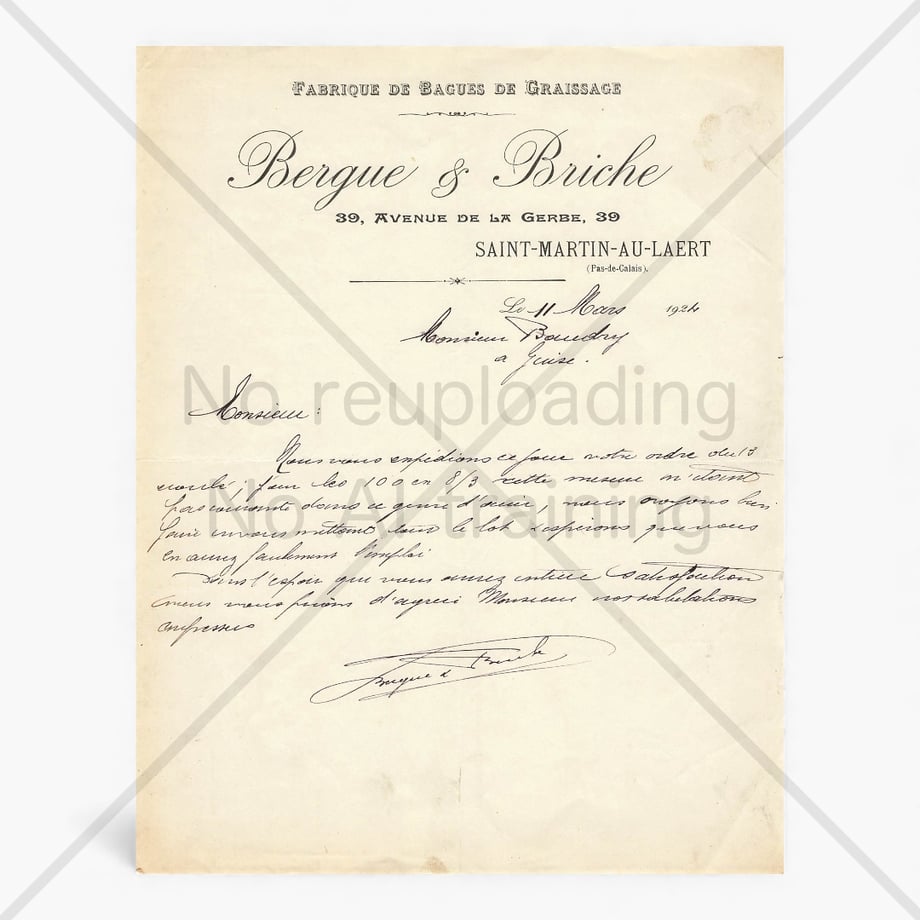 FABRIQUE DE BAGUES DE GRAISSAGE
Bergue & Briche
39, AVENUE DE LA GERBE, 39
SAINT-MARTIN-AU-LAERT
(Pas-de-Calais).
Le 11 Mars 1924
Monsieur Baudry
a Guise.
No reuploading
Monsieur :
Nous vous expédions ce jour votre ordre du 13
pour les 100 en 8/3 cette mesure n'étant
pas courante dans ce genre d'
No AI training
faire en vous mettant dans le lot espérons que vous
en aurez facilement l'emploi
Dans l'espoir que vous aurez entière satisfaction
nous vous prions d'agréer Monsieur nos salutations
empressées
Bergue & Briche